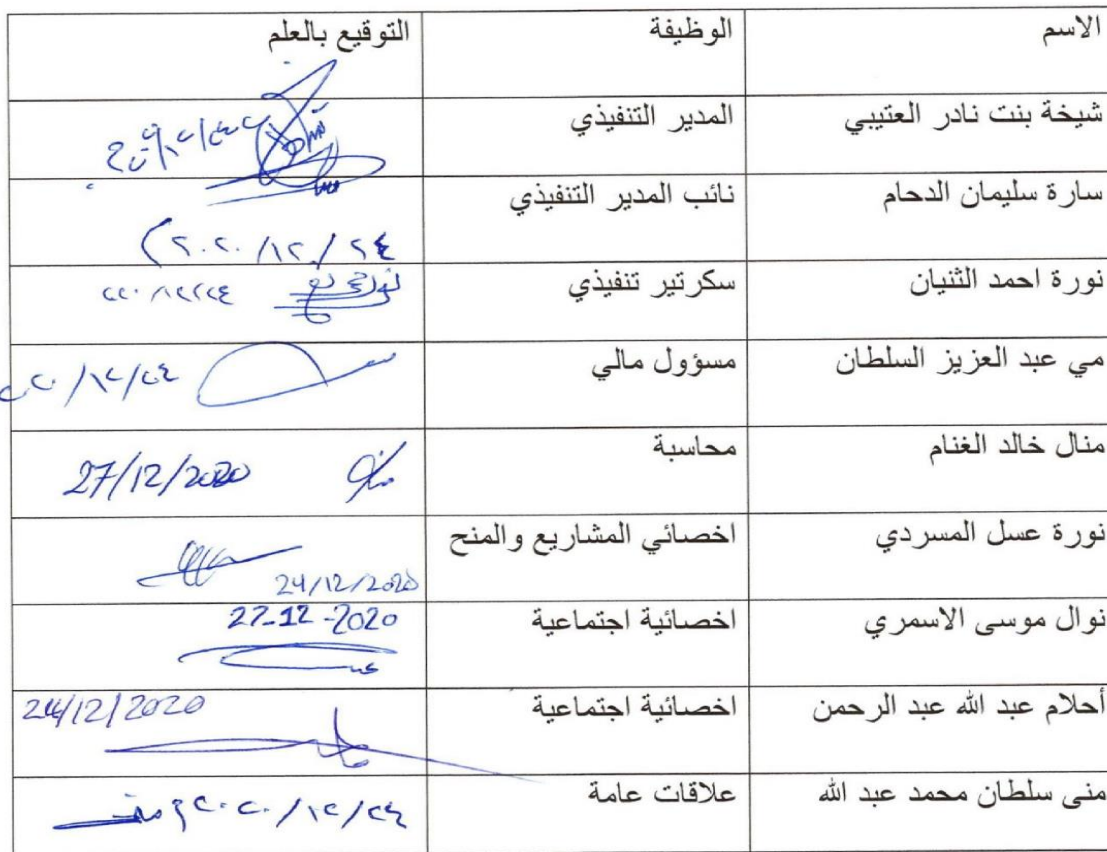 الاسم الوظيفة التوقيع بالعلم
شيخة بنت نادر العتيبي المدير التنفيذي
سارة سليمان الدحام نائب المدير التنفيذي ٢٤/١٢/٢٠٢٠
نورة احمد الثنيان سكرتير تنفيذي
مي عبد العزيز السلطان مسؤول مالي
منال خالد الغنام محاسبة 27/12/2020
نورة عسل المسردي اخصائي المشاريع والمنح 24/12/2020
نوال موسى الاسمري اخصائية اجتماعية 27-12-2020
أحلام عبد الله عبد الرحمن اخصائية اجتماعية 24/12/2020
منى سلطان محمد عبد الله علاقات عامة ٢٤/١٢/٢٠٢٠